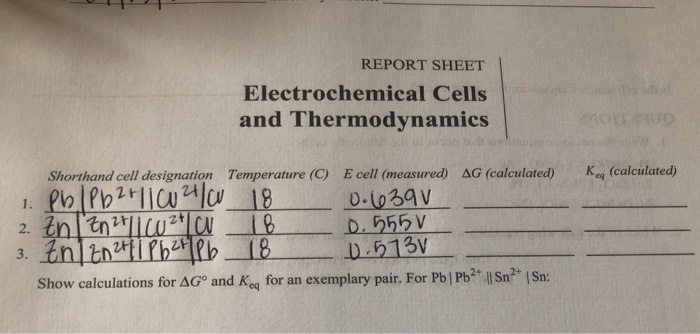 REPORT SHEET
Electrochemical Cells
and Thermodynamics
Shorthand cell designation Temperature (C) E cell (measured) ΔG (calculated) Keq (calculated)
1. Pb|Pb²⁺||Cu²⁺|Cu 18 0.639V
2. Zn|Zn²⁺||Cu²⁺|Cu 18 0.555V
3. Zn|Zn²⁺||Pb²⁺|Pb 18 0.573V
Show calculations for ΔG° and Keq for an exemplary pair. For Pb | Pb²⁺ || Sn²⁺ | Sn: